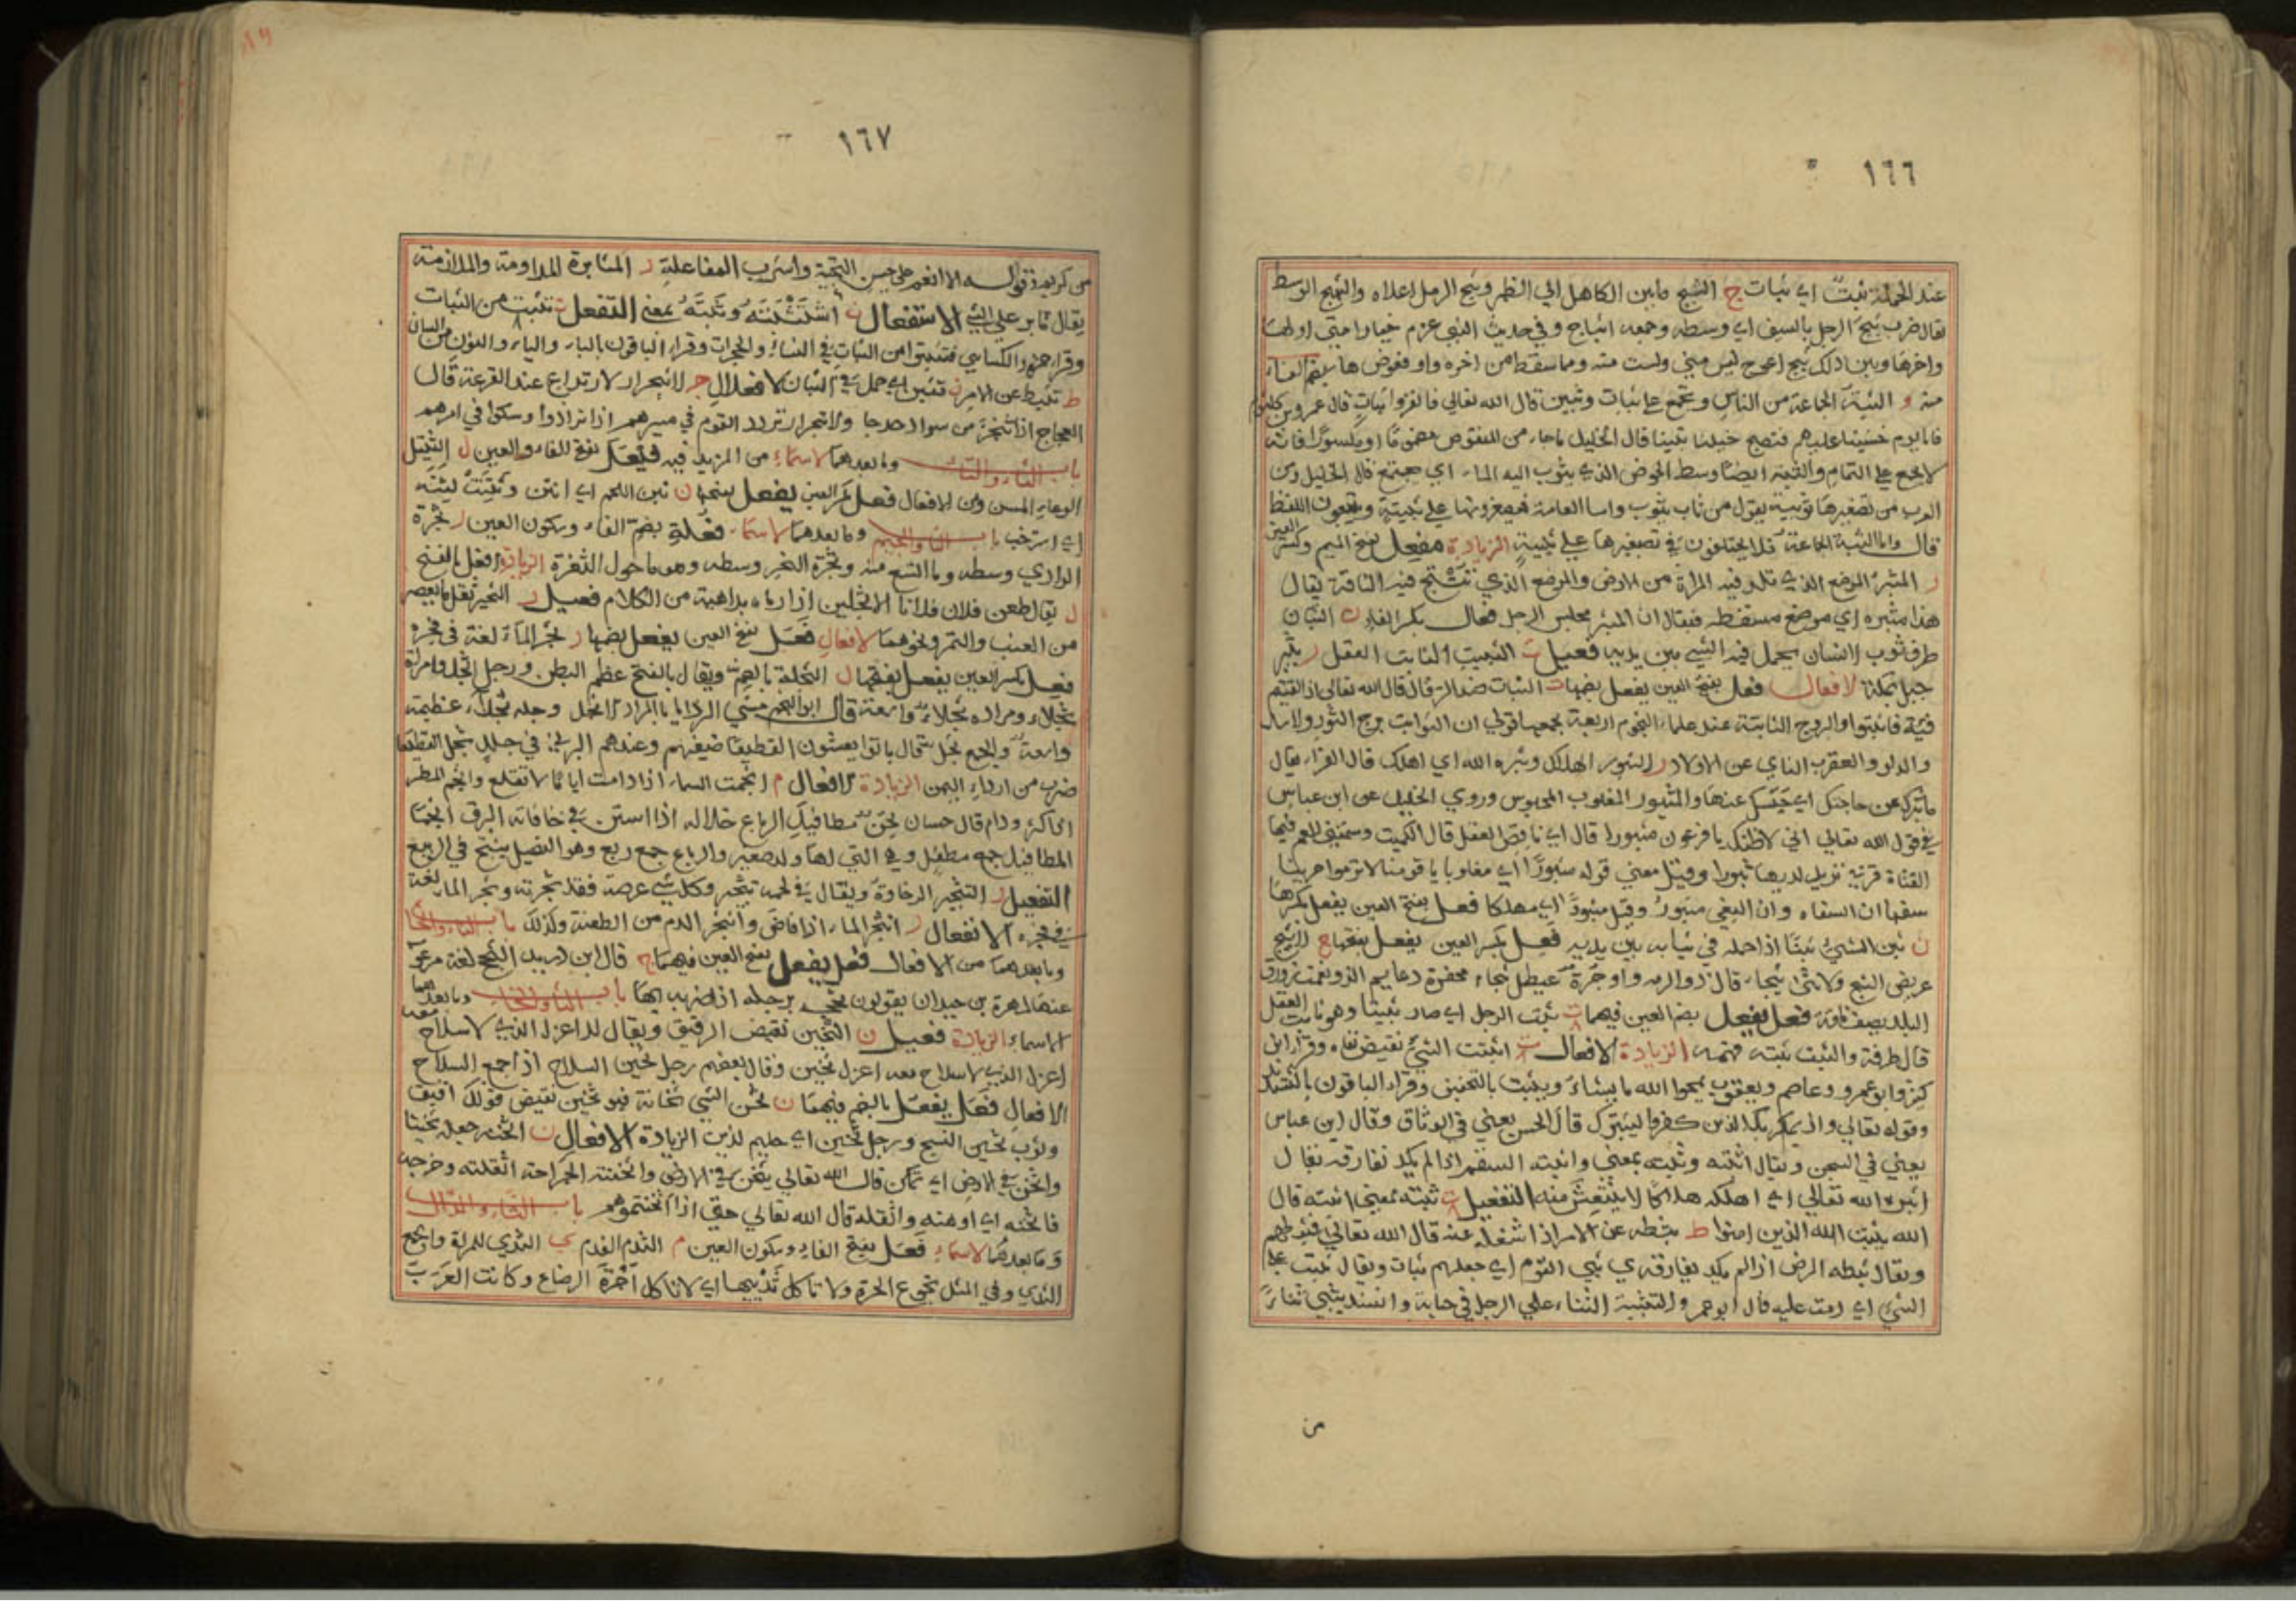 ١٦٦
عند الحملة ثبتٌ اي ثبات ج الثبج ما بين الكاهل الي الظهر وثبج الرمل اعلاه والثبج الوسط
يقال ضرب ثبج الرجل بالسيف اي وسطه وجمعه اثباج وفي حديث النبي عزم خيار امتي اولها
واخرها وبين ذلك ثبج اعوج ليس مني ولست منه ومما سقط من اخره واو فعوض هاء بضم الفاء
منه و الثبة الجماعة من الناس وتجمع علي ثبات وثبين قال الله تعالي فانفروا ثبات قال عمرو بن كلثوم
فاما يوم خشيتنا عليهم فتصبح خيلنا ثبينا قال الخليل ما جاء من المنقوص مضمومًا او مكسورًا فانه
لا يجمع علي التمام والثبة ايضًا وسط الحوض الذي يثوب اليه الماء اي يجتمع قال الخليل ومن
العرب من تصغيرها ثويبة يقول من ثاب يثوب واما العامة فيصغرونها علي ثبيّة ويتبعون اللفظ
قال واما الثبة الجماعة فلا يختلفون في تصغيرها علي ثبيّة الزيادة مفعل بفتح الميم وكسر العين
ر المثبر الموضع الذي تلد فيه المراة من الارض والموضع الذي تنتج فيه الناقة يقال
هذا مثبره اي موضع مسقطه فيقال ان المثبر مجلس الرجل فعال بكسر الفاء ن الثبان
طرف ثوب الانسان يحمل فيه الشي بين يديه فعيل ت الثبيت الثابت العقل ر ثبير
جبل بمكة الافعال فعل بفتح العين يفعل بضمها ت الثبات ضد الزوال قال الله تعالي اذا لقيتم
فئة فاثبتوا والبروج الثابتة عند علماء النجوم اربعة يجمعها قولي ان الثوابت برج الثور والاسد
والدلو والعقرب النائي عن الاولاد ر الثبور الهلاك وثبره الله اي اهلك قال الفراء يقال
ما ثبرك عن حاجتك اي حبسك عنها والمثبور المغلوب المحبوس وروي الخليل عن ابن عباس
في قول الله تعالي اني لاظنك يا فرعون مثبورا قال اي ناقص العقل قال الكميت
سفها ان السفاه وان البغي مثبورٌ وقيل مثبورًا اي مهلكا فعل بفتح العين يفعل بكسرها
ن ثبن الشي ثبنًا اذا حمله في ثيابه بين يديه فعِل بكسر العين يفعل بفتحها ج الاثبج
البلد يصف ناقة فعل يفعل بضم العين فيهما ت ثبت الرجل اي صار ثبيتا وهو ثابت العقل
قال طرفة والثبت ثبته فهمه الزيادة الافعال ت اثبتت الشي نقيض نفاه وقرا ابن
كثير وابو عمرو وعاصم ويعقوب يمحوا الله ما يشاء ويثبت بالتخفيف وقراء الباقون بالتشديد
وقوله تعالي واذ يمكر بك الذين كفروا ليثبتوك قال الحسن يعني في الوثاق وقال ابن عباس
يعني في السجن ويقال اثبته وثبته بمعني واثبته السقم اذا لم يكد تفارقه يقال
اثبره الله تعالي اي اهلكه هلاكًا لا ينتعش منه التفعيل ت ثبته بمعني اثبته قال
الله يثبت الله الذين امنوا ط ثبطه عن الامر اذا شغله عنه قال الله تعالي فثبطهم
ويقال ثبطه المرض اذا لم يكد يفارقه ي ثبي القوم اي جعلهم ثبات ويقال ثبيت علي
الشي اي دمت عليه قال ابو عمرو والتثبية الثناء علي الرجل في حياته وانشد يثبي ثناءً
من
١٦٧
من كريم وقوله الا انعم علي حسن التحية واشرب المفاعلة ر المثابرة المداومة والملازمة
يقال ثابر علي الشي الاستفعال ت استثبته وثبته بمعني التفعل ت تثبت من الثبات
وقراء حمزة والكسائي فتثبتوا من الثبات في النساء والحجرات وقراء الباقون بالباء والياء والنون من البيان
ط تثبط عن الامر ن تثبن اي حمل في الثبان الافعلال ج الاثبجرار الارتداع عند الفزعة قال
العجاج اذا اثبجرّ من سواد حدجا والاثبجرار تردد القوم في مسيرهم اذا ترادوا وسكتوا في امرهم
باب الثاء والتاء وما بعدهما الاسماء من المزيد فيه فيعل بفتح الفاء والعين ل الثيتل
الوعل المسن ومن الافعال فعل بكسر العين يفعل بفتحها ن ثتن اللحم اي انتن وثتنت لثته
اي استرخت باب الثاء والجيم وما بعدهما الاسماء فعلة بضم الفاء وسكون العين ر ثجرة
الوادي وسطه وما اتسع منه وثجرة النحر وسطه وهو ما حول الثغرة الزيادة افعل بالفتح
ل يقال طعن فلان فلانا الاثجلين اذا رماه بداهية من الكلام فعيل ر الثجير ثفل ما يعصر
من العنب والتمر ونحوهما الافعال فعل بفتح العين يفعل بضمها ر ثجر الماء لغة في فجره
فعل بكسر العين يفعل بفتحها ل الثجلة بالضم ويقال بالفتح عظم البطن ورجل اثجل وامراة
ثجلاء ومزاده ثجلاء واسعة قال ابو النجم مشي الروايا بالمزاد الاثجل وجلة ثجلاء عظيمة
واسعة والجمع ثجل قال باتوا يعشون القطيعاء ضيفهم وعندهم البرني في جلل ثجل القطيعا
ضرب من اردء التمر الزيادة الافعال م اثجمت السماء اذا دامت اياما لا تقلع واثجم المطر
اي كثر ودام قال حسان
المطافيل جمع مطفل وهي التي لها ولد صغير والرباع جمع ربع وهو الفصيل ينتج في الربيع
التفعيل ر التثجير الرخاوة ويقال في لحمه تثجير وكل شي عرضته فقد ثجرته وثجر الماء لغة
في فجره الانفعال ر انثجر الماء اذا فاض وانثجر الدم من الطعنة وكذلك باب الثاء والحاء
وما بعدهما من الافعال فعل يفعل بفتح العين فيهما ج قال ابن دريد الثحج لغة مرغوب
عنها لمهرة بن حيدان يقولون ثحجه برجله اذا ضربه بها باب الثاء والخاء وما بعدهما
الاسماء الزيادة فعيل ن الثخين نقيض الرقيق ويقال للاعزل الذي لا سلاح معه
اعزل الذي لا سلاح معه اعزل ثخين وقال بعضهم رجل ثخين السلاح اذا جمع السلاح
الافعال فعل يفعل بالضم فيهما ن ثخن الشي ثخانة فهو ثخين نقيض قولك رقيق
وثوب ثخين النسج ورجل ثخين اي حليم رزين الزيادة الافعال ن اثخنه جعله ثخينا
واثخن في الارض اي تمكن قال الله تعالي يثخن في الارض واثخنته الجراحة اثقلته وضربه
فاثخنه اي اوهنه واثقله قال الله تعالي حتي اذا اثخنتموهم باب الثاء والدال
وما بعدهما الاسماء فعل بفتح الفاء وسكون العين م الثدم الفدم ي الثدي للمراة والجمع
الثدي وفي المثل تجوع الحرة ولا تاكل ثدييها اي لا تاكل اجرة الرضاع وكانت العرب